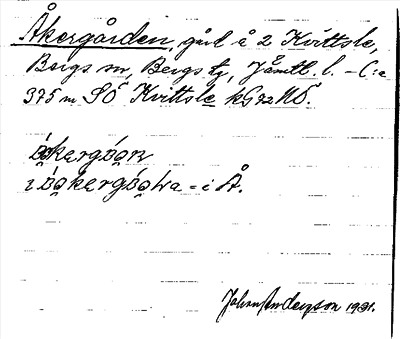 Åkergården, gård å 2 Kvittsle,
Bergs sn, Bergs tg, Jämtl. l. – C:a
375 m SÖ Kvittsle kG 72 NÖ.
i Å.
Johan Anderson 1931.